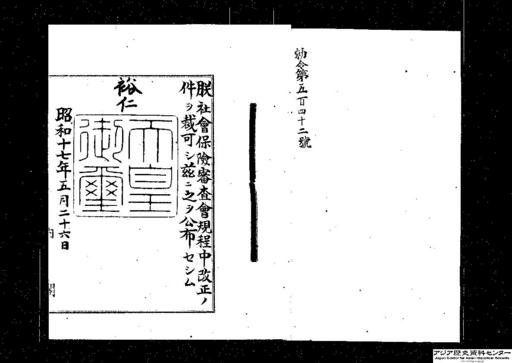 勅令第五百四十二號
朕社會保險審査會規程中改正ノ
件ヲ裁可シ茲ニ之ヲ公布セシム
裕仁
天皇
御璽
昭和十七年五月二十六日
内閣
アジア歴史資料センター
Japan Center for Asian Historical Records